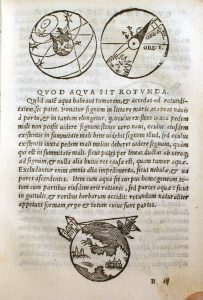 ORIENS
QVOD AQVA SIT ROTVNDA.
Quòd autē aqua habeat tumorem, & accedat ad rotundi-
tatem, sic patet. Ponatur signum in littore maris, & exeat nauis
à portu, & in tantum elongetur, q̃ oculus existens iuxta pedem
mali non possit uidere signum: stante uero naui, oculus eiusdem
existentis in summitate mali bene uidebit signum illud, sed oculus
existentis iuxta pedem mali melius deberet uidere signum, quàm
qui est in summitate mali, sicut patet per lineas ductas ab utroq;
ad signum, & nulla alia huius rei causa est, quàm tumor aquæ.
Excludantur enim omnia alia impedimenta, sicut nebulæ, & ua
pores ascendentes. Item cum aqua sit corpus homogeneum, to-
tum cum partibus eiusdem erit rationis, sed partes aquæ (sicut in
guttulis, & roribus herbarum accidit) rotundam naturaliter
appetunt formam ergo & totum cuius sunt partes.
B iij